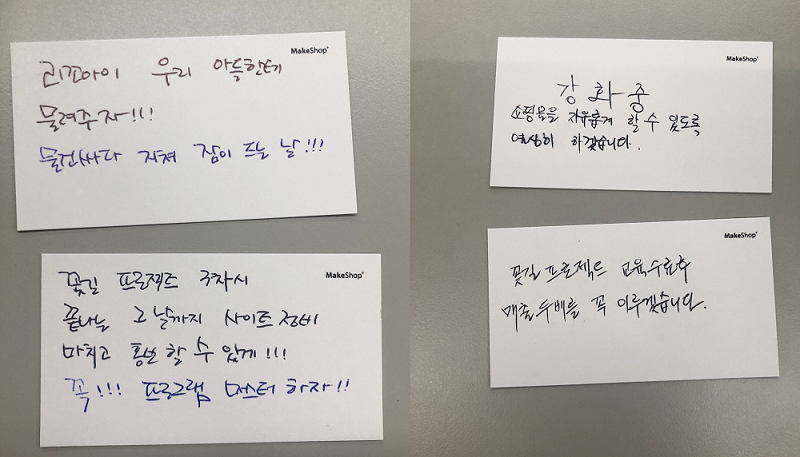 MakeShop
리꼬아이 우리 아들한테
물려주자!!!
물건싸다 지쳐 잠이 드는 날!!!
MakeShop
꽃길 프로젝트 3차시
끝나는 그날까지 사이트 정비
마치고 홍보 할 수 있게!!!
꼭!!! 프로그램 마스터 하자!!
MakeShop
강화중
쇼핑몰을 자유롭게 할 수 있도록
열심히 하겠습니다.
MakeShop
꽃길 프로젝트 교육수료후
매출 두배를 꼭 이루겠습니다.